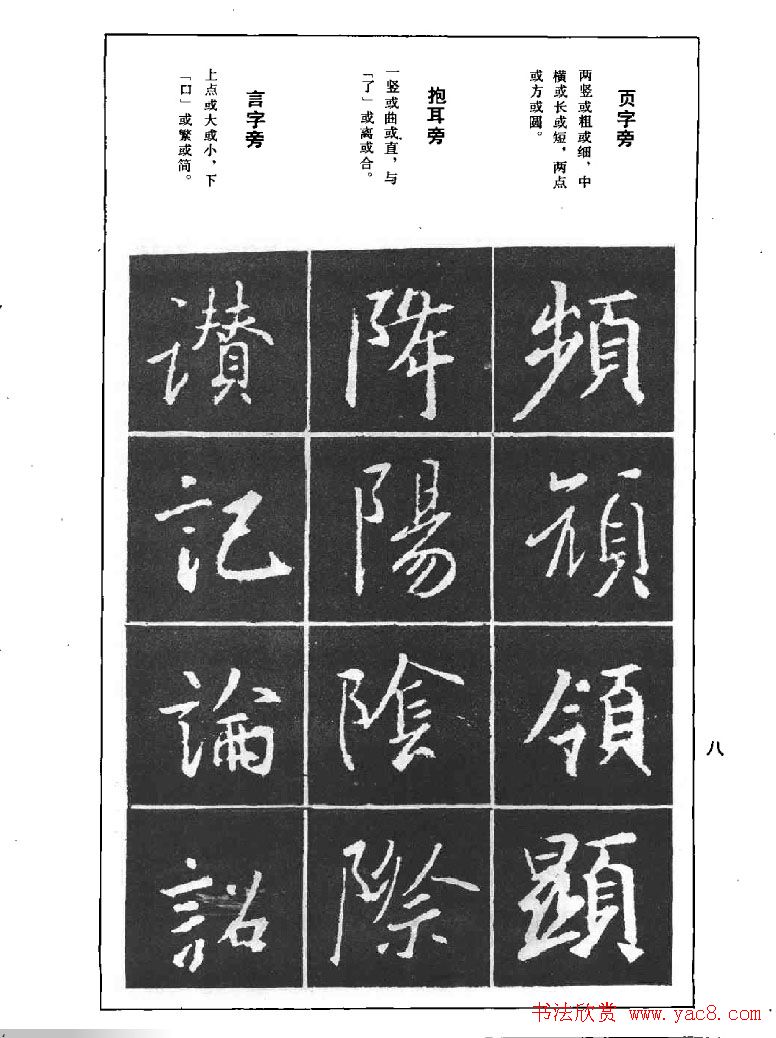 页字旁
两竖或粗或细，中
横或长或短，两点
或方或圆。
頻
頑
領
顯
抱耳旁
一竖或曲或直，与
「了」或离或合。
降
陽
陰
際
言字旁
上点或大或小，下
「口」或繁或简。
讃
記
論
詔
八
书法欣赏 www.yac8.com